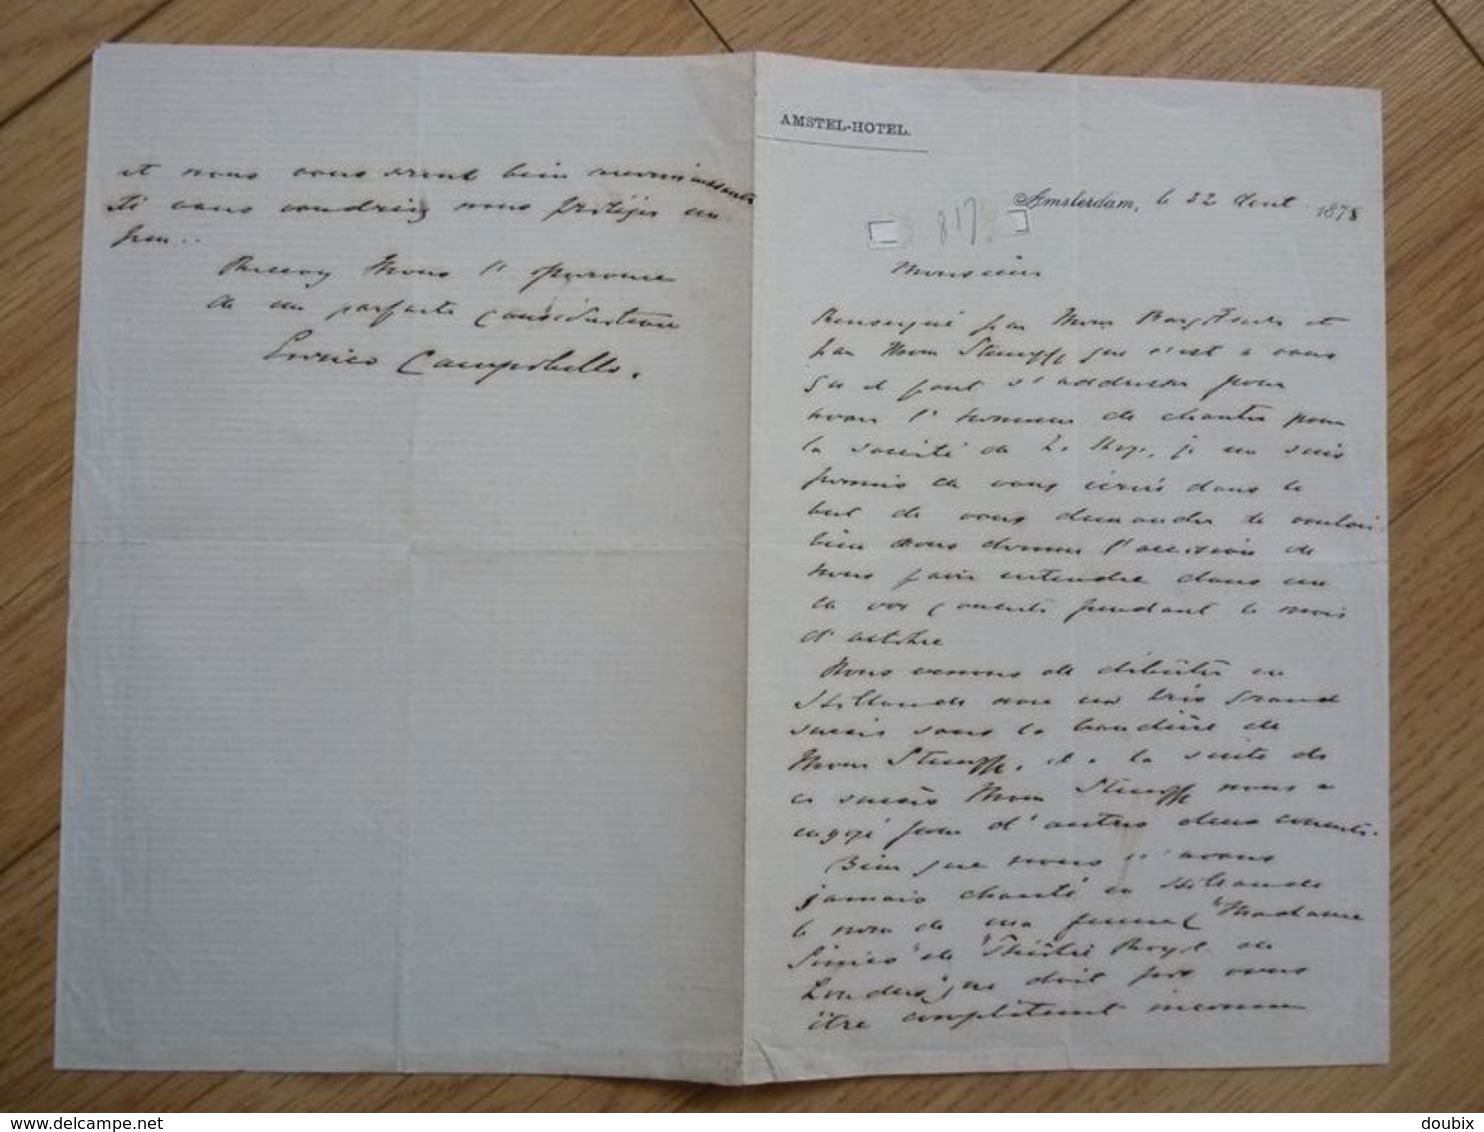 AMSTEL-HOTEL.
Amsterdam, le 22 Aout 1878
817
Monsieur
Renseigné par Mons et
par Mons Stumpff que c'est a vous
qu il faut s'addresser pour
avoir l'honneur de chanter pour
la société de La Haye, je me suis
permis de vous écrire dans le
but de vous demander de vouloir
bien nous donner l'occasion de
nous faire entendre dans un
de vos concerts pendant le mois
d'octobre
Nous venons de débuter en
Hollande avec un très grand
succès sous la de
Mons Stumpff, et a la suite de
ce succès Mons Stumpff nous a
engagé pour d'autres deux concerts.
Bien que nous n'avons
jamais chanté en Hollande
le nom de ma femme "Madame
Sinico" de "Théâtre Royal de
Londres" que doit pas vous
être complètement inconnu
et nous vous serons bien reconnaissants
si vous voudriez nous protéger un
peu..
Recevez Mons l'
de ma parfaite consideration
Enrico Campobello.
doubix